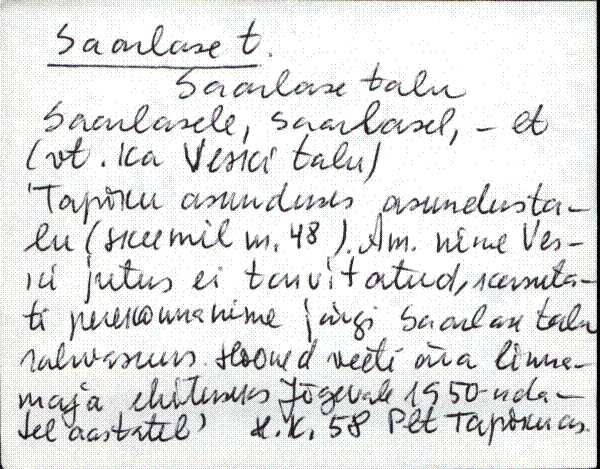 Saarlase t.
Saarlase talu
Saarlasele, Saarlasel, - et
(vt. ka Veski talu)
'Tapiku asunduses asundusta-
lu (skeemil nr. 48). Am. nime Ves-
ki jutus ei tarvitatud, kasuta-
ti perekonnanime järgi Saarlase talu
rahvasuus. Hooned veeti ära linna-
maja ehituseks Jõgevale 1950-nda-
tel aastatel' K.K. 58 Plt Tapiku as.